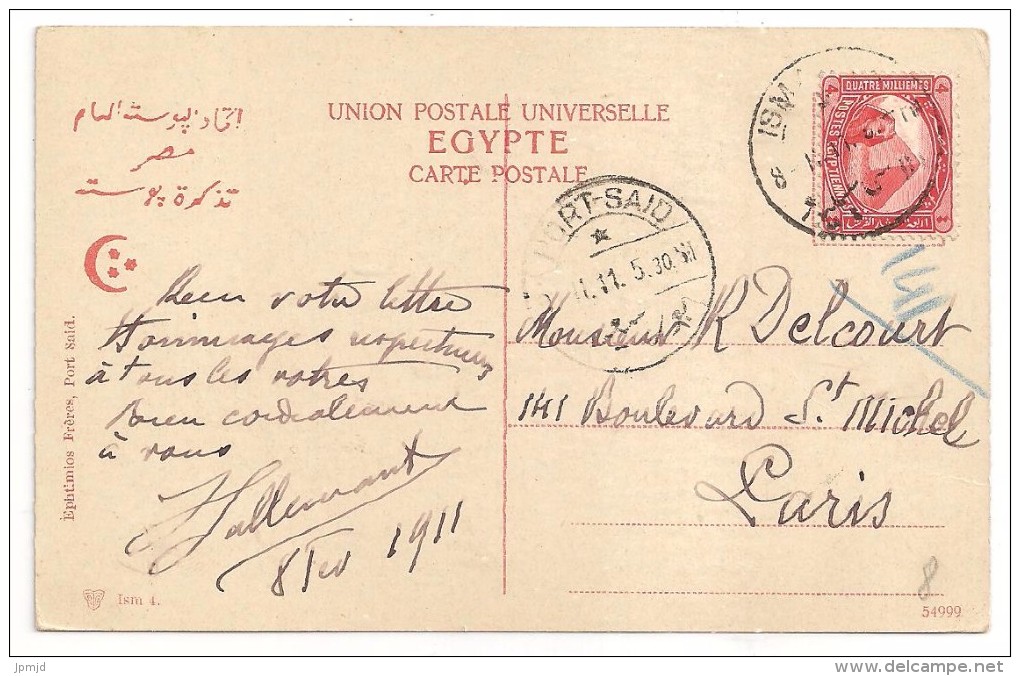 UNION POSTALE UNIVERSELLE
EGYPTE
CARTE POSTALE
اتحاد بوسته العام
مصر
تذكرة بوسته
QUATRE MILLIEMES
POSTES EGYPTIENNES
PORT-SAID
11. 5.30
Reçu votre lettre
Hommages respectueux
à tous les vôtres
bien cordialement
à vous
8 Fev 1911
Monsieur R Delcourt
141 Boulevard St Michel
Paris
Ephtimios Frères, Port Said.
Ism 4.
8
54999
jpmjd
www.delcampe.net